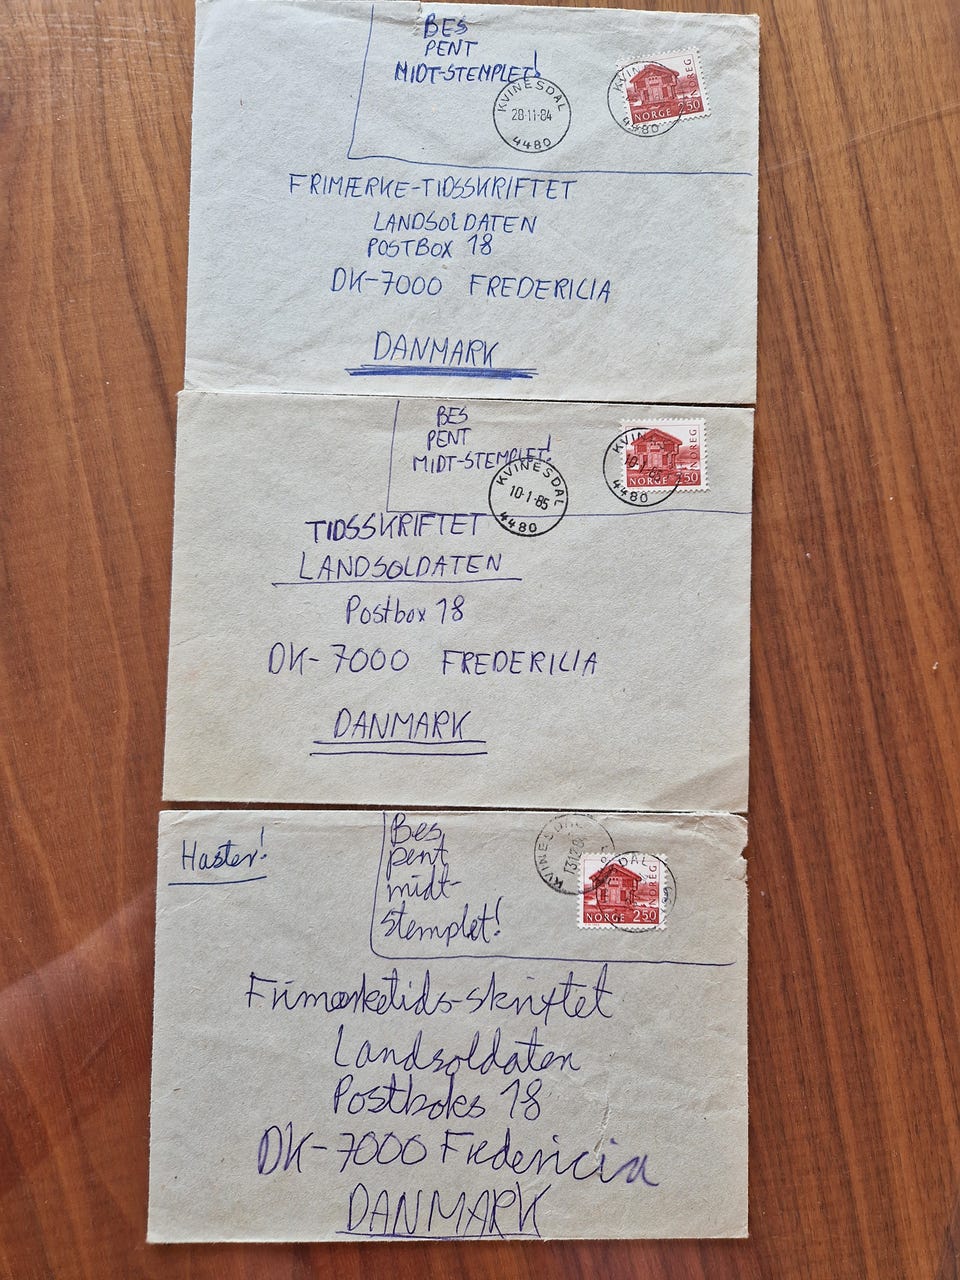 BES
PENT
MIDT-STEMPLET!
KVINESDAL
28-11-84
4480
KVIN
4480
NOREG
NORGE 250
FRIMÆRKE-TIDSSKRIFTET
LANDSOLDATEN
POSTBOX 18
DK-7000 FREDERICIA
DANMARK
BES
PENT
MIDT-STEMPLET!
KVINESDAL
10-1-85
4480
KVIN
10-1-85
4480
NOREG
NORGE 250
TIDSSKRIFTET
LANDSOLDATEN
Postbox 18
DK-7000 FREDERICIA
DANMARK
Haster!
Bes
pent
midt-
stemplet!
KVINESDA
DAL
NOREG
NORGE 250
Frimærketids-skriftet
Landsoldaten
Postboks 18
DK-7000 Fredericia
DANMARK